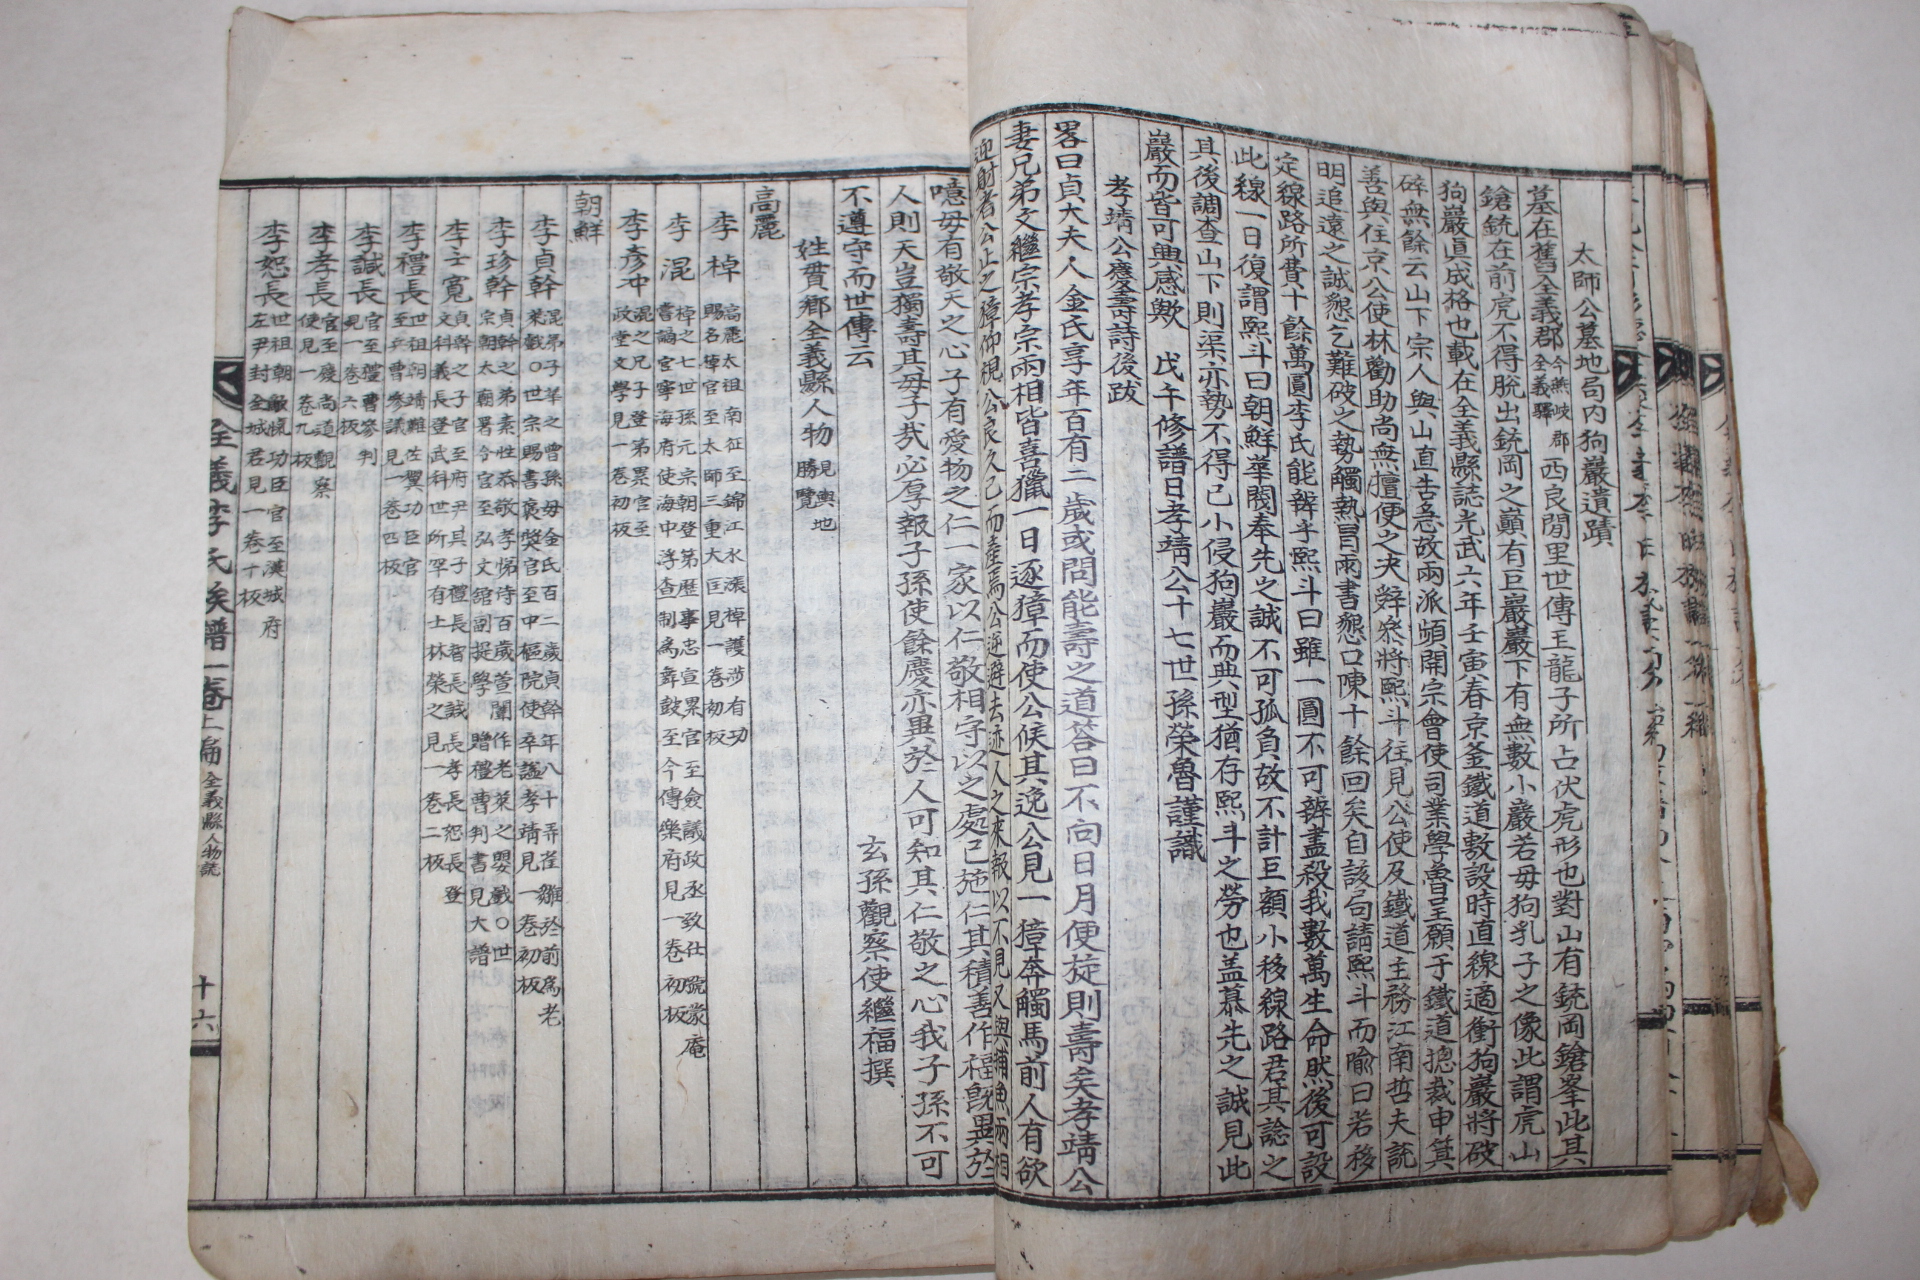 太師公墓地局內狗巖遺蹟
墓在舊全義郡今燕岐郡全義驛西良閒里世傳王龍子所占伏虎形也對山有銃岡鎗峯此其
鎗銃在前虎不得脫出銃岡之巔有巨巖巖下有無數小巖若母狗乳子之像此謂虎山
狗巖眞成格也載在全義縣誌光武六年壬寅春京釜鐵道敷設時直線適衝狗巖將破
碎無餘云山下宗人與山直告急故兩派頻開宗會使司業學魯呈願于鐵道摠裁申箕
善與住京公使林勸助尙無擅便之決辤衆將熙斗往見公使及鐵道主務江南哲夫說
明追遠之誠懇乞難破之勢觸熱冒雨書懇口陳十餘回矣自該局請熙斗而喩曰若移
定線路所費十餘萬圓李氏能辨乎熙斗曰雖一圓不可辨盡殺我數萬生命然後可設
此線一日復謂熙斗曰朝鮮華閥奉先之誠不可孤負故不計巨額小移線路君其諗之
其後調査山下則渠亦勢不得已小侵狗巖而典型猶存熙斗之勞也盖慕先之誠見此
巖而皆可興感歟 戊午修譜日孝靖公十七世孫榮魯謹識
孝靖公慶壽詩後跋
畧曰貞大夫人金氏享年百有二歲或問能壽之道答曰不向日月便旋則壽矣孝靖公
妻兄弟文繼宗孝宗兩相皆喜獵一日逐獐而使公候其逸公見一獐奔觸馬前人有欲
迎射者公止之獐仰視公良久已而走焉公逆避去迹人之來報以不見又與捕魚兩相
噫毋有敬天之心子有愛物之仁一家以仁敬相守以之處己施仁其積善作福旣異於
人則天豈獨壽其母子哉必厚報子孫使餘慶亦異於人可知其仁敬之心我子孫不可
不遵守而世傳云 玄孫觀察使繼福撰
姓貫鄕全義縣人物見輿地勝覽
高麗
李棹高麗太祖南征至錦江水漲棹護涉有功賜名棹官至太師三重大匡見一卷初板
李混棹之七世孫元宗朝登第歷事忠宣累官至僉議政丞致仕號蒙庵嘗謫官寧海府使海中浮査制爲舞鼓至今傳樂府見一卷初板
李彥冲混之兄子登第累官至政堂文學見一卷初板
朝鮮
李貞幹混弟子華之曾孫母金氏百二歲貞幹年八十弄茬雛於前爲老萊戲○世宗賜書褒奬官至中樞院使卒謚孝靖見一卷初板
李珍幹貞幹之弟素性恭敬孝悌侍百歲萱闈作老萊之嬰戲○世宗朝太廟署令官至弘文舘副提學贈禮曹判書見大譜
李士寬貞幹之子官至府尹其子禮長智長誠長孝長恕長登文科義長登武科世所罕有士林榮之見一卷二板
李禮長世祖朝靖難佐翼功臣官至兵曹參議見一卷四板
李諴長官至禮曹參判見一卷六板
李孝長官至慶尙道觀察使見一卷九板
李恕長世祖朝敵愾功臣官至漢城府左尹封全城君見一卷十板
全義李氏族譜一卷上編 全義縣人物說 十六